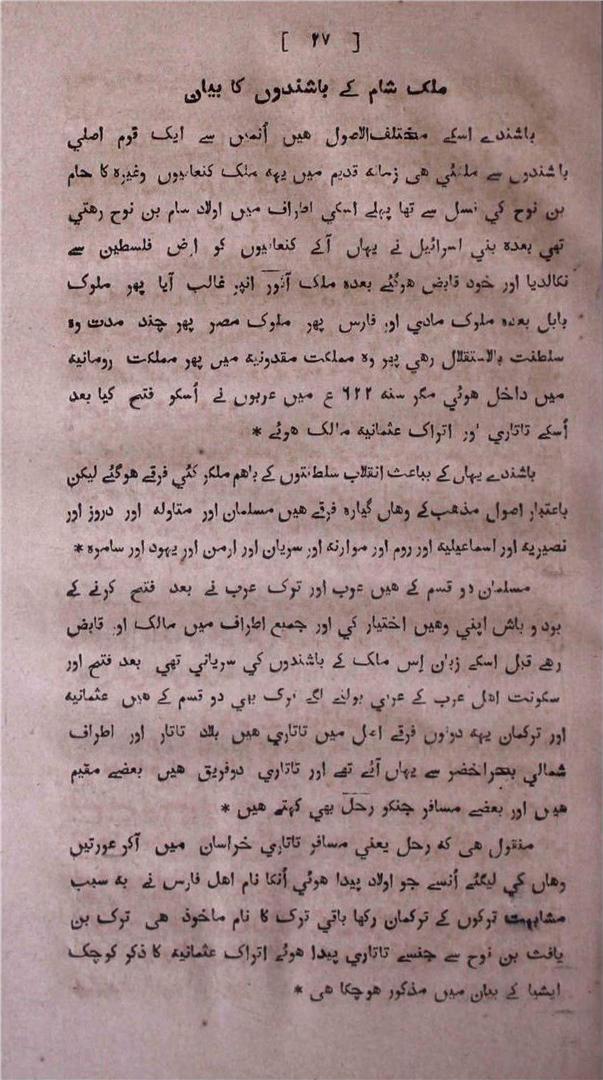 [ ۴۷ ]
ملک شام کے باشندوں کا بیان
باشندے اسکے مختلف الاصول هیں اُنمیں سے ایک قوم اصلي
باشندوں سے ملتي هی زمانه قدیم میں یهه ملک کنعانیوں وغیره کا حام
بن نوح کي نسل سے تها پہلے اسکي اطراف میں اولاد سام بن نوح رهتي
تهي بعده بني اسرائیل نے یهاں آکے کنعانیوں کو ارض فلسطین سے
نکالدیا اور خود قابض هوگئے بعده ملک آثور انپر غالب آیا پهر ملوک
بابل بعده ملوک مادي اور فارس پهر ملوک مصر پهر چند مدت وه
سلطنت بالاستقلال رهي پهر وه مملکت مقدونیه میں پهر مملکت رومانیه
میں داخل هوئي مگر سنه ۶۲۲ ع میں عربوں نے اُسکو فتح کیا بعد
اُسکے تاتاري اور اتراک عثمانیه مالک هوئے *
باشندے یهاں کے بباعث انقلاب سلطنتوں کے باهم ملکر کئي فرقے هوگئے لیکن
باعتبار اصول مذهب کے وهاں گیاره فرقے هیں مسلمان اور متاوله اور دروز اور
نصیریه اور اسماعیلیه اور روم اور موارنه اور سریان اور ارمن اور یهود اور سامره *
مسلمان دو قسم کے هیں عرب اور ترک عرب نے بعد فتح کرنے کے
بود و باش اپني وهیں اختیار کي اور جمیع اطراف میں مالک اور قابض
رهے قبل اسکے زبان اِس ملک کے باشندوں کي سریاني تهي بعد فتح اور
سکونت اهل عرب کے عربي بولنے لگے ترک بهي دو قسم کے هیں عثمانیه
اور ترکمان یهه دونوں فرقے اصل میں تاتاري هیں بلاد تاتار اور اطراف
شمالي بحراخضر سے یهاں آئے تهے اور تاتاري دوفریق هیں بعضے مقیم
هیں اور بعضے مسافر جنکو رحل بهي کہتے هیں *
منقول هی که رحل یعني مسافر تاتاري خراسان میں آکر عورتیں
وهاں کي لیگئے اُنسے جو اولاد پیدا هوئي اُنکا نام اهل فارس نے به سبب
مشابهت ترکوں کے ترکمان رکها باقي ترک کا نام ماخوذ هی ترک بن
یافث بن نوح سے جنسے تاتاري پیدا هوئے اتراک عثمانیه کا ذکر کوچک
ایشیا کے بیان میں مذکور هوچکا هی *